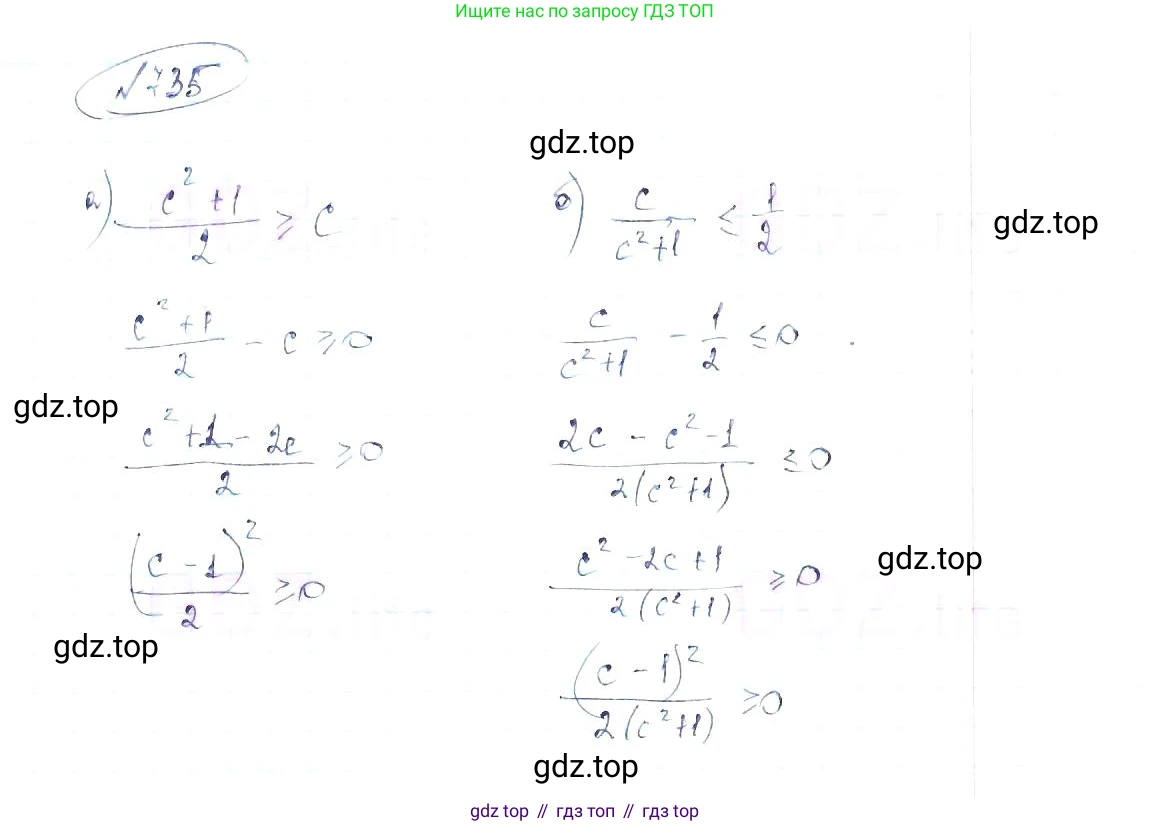 Ищите нас по запросу ГДЗ ТОП
№735
gdz.top
а) (c² + 1)/2 ≥ c
б) c/(c² + 1) ≤ 1/2
gdz.top
(c² + 1)/2 - c ≥ 0
c/(c² + 1) - 1/2 ≤ 0
gdz.top
(c² + 1 - 2c)/2 ≥ 0
(2c - c² - 1)/(2(c² + 1)) ≤ 0
(c - 1)²/2 ≥ 0
(c² - 2c + 1)/(2(c² + 1)) ≥ 0
gdz.top
gdz.top
(c - 1)²/(2(c² + 1)) ≥ 0
gdz.top
gdz top // гдз топ // гдз top